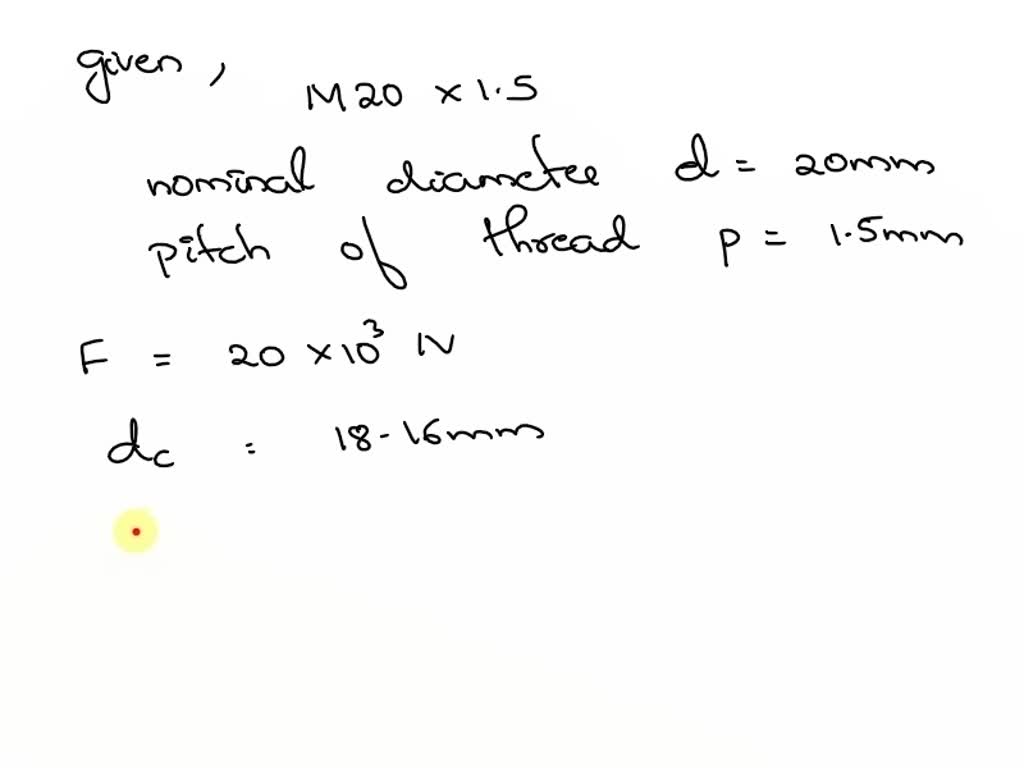 given,
M20 × 1.5
nominal diameter d = 20mm
pitch of thread p = 1.5mm
F = 20 × 10³ N
dc = 18.16mm